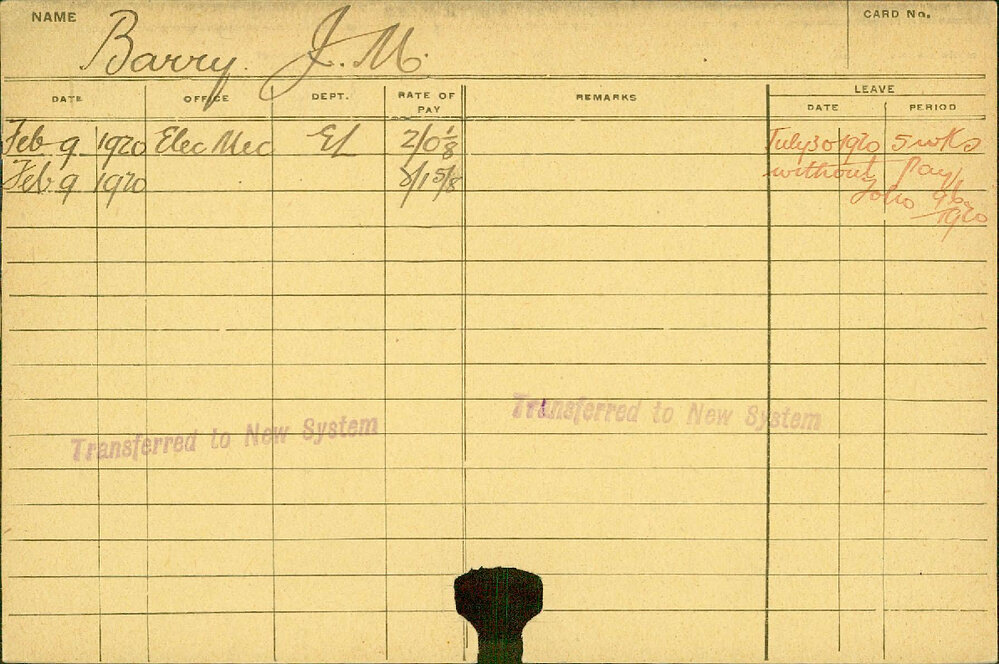 NAME Barry. J. M. CARD No.
DATE OFFICE DEPT. RATE OF PAY REMARKS LEAVE
DATE PERIOD
Feb 9 1920 Elec Mec El 2/0⅛ July 30 1920 5 wks
Feb 9 1920 /1⅝ without Pay
1920
Transferred to New System
Transferred to New System